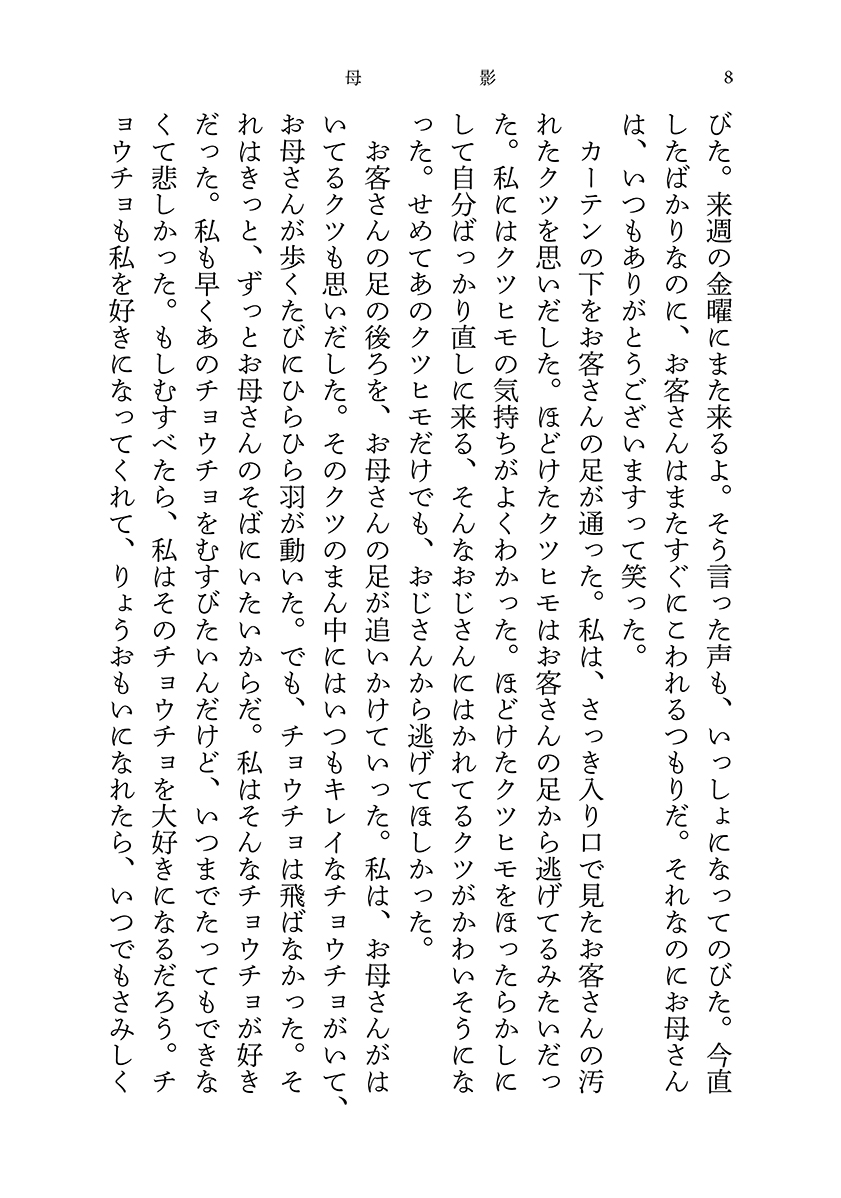 母影
8
びた。来週の金曜にまた来るよ。そう言った声も、いっしょになってのびた。今直
したばかりなのに、お客さんはまたすぐにこわれるつもりだ。それなのにお母さん
は、いつもありがとうございますって笑った。
カーテンの下をお客さんの足が通った。私は、さっき入り口で見たお客さんの汚
れたクツを思いだした。ほどけたクツヒモはお客さんの足から逃げてるみたいだっ
た。私にはクツヒモの気持ちがよくわかった。ほどけたクツヒモをほったらかしに
して自分ばっかり直しに来る、そんなおじさんにはかれてるクツがかわいそうにな
った。せめてあのクツヒモだけでも、おじさんから逃げてほしかった。
お客さんの足の後ろを、お母さんの足が追いかけていった。私は、お母さんがは
いてるクツも思いだした。そのクツのまん中にはいつもキレイなチョウチョがいて、
お母さんが歩くたびにひらひら羽が動いた。でも、チョウチョは飛ばなかった。そ
れはきっと、ずっとお母さんのそばにいたいからだ。私はそんなチョウチョが好き
だった。私も早くあのチョウチョをむすびたいんだけど、いつまでたってもできな
くて悲しかった。もしむすべたら、私はそのチョウチョを大好きになるだろう。チ
ョウチョも私を好きになってくれて、りょうおもいになれたら、いつでもさみしく